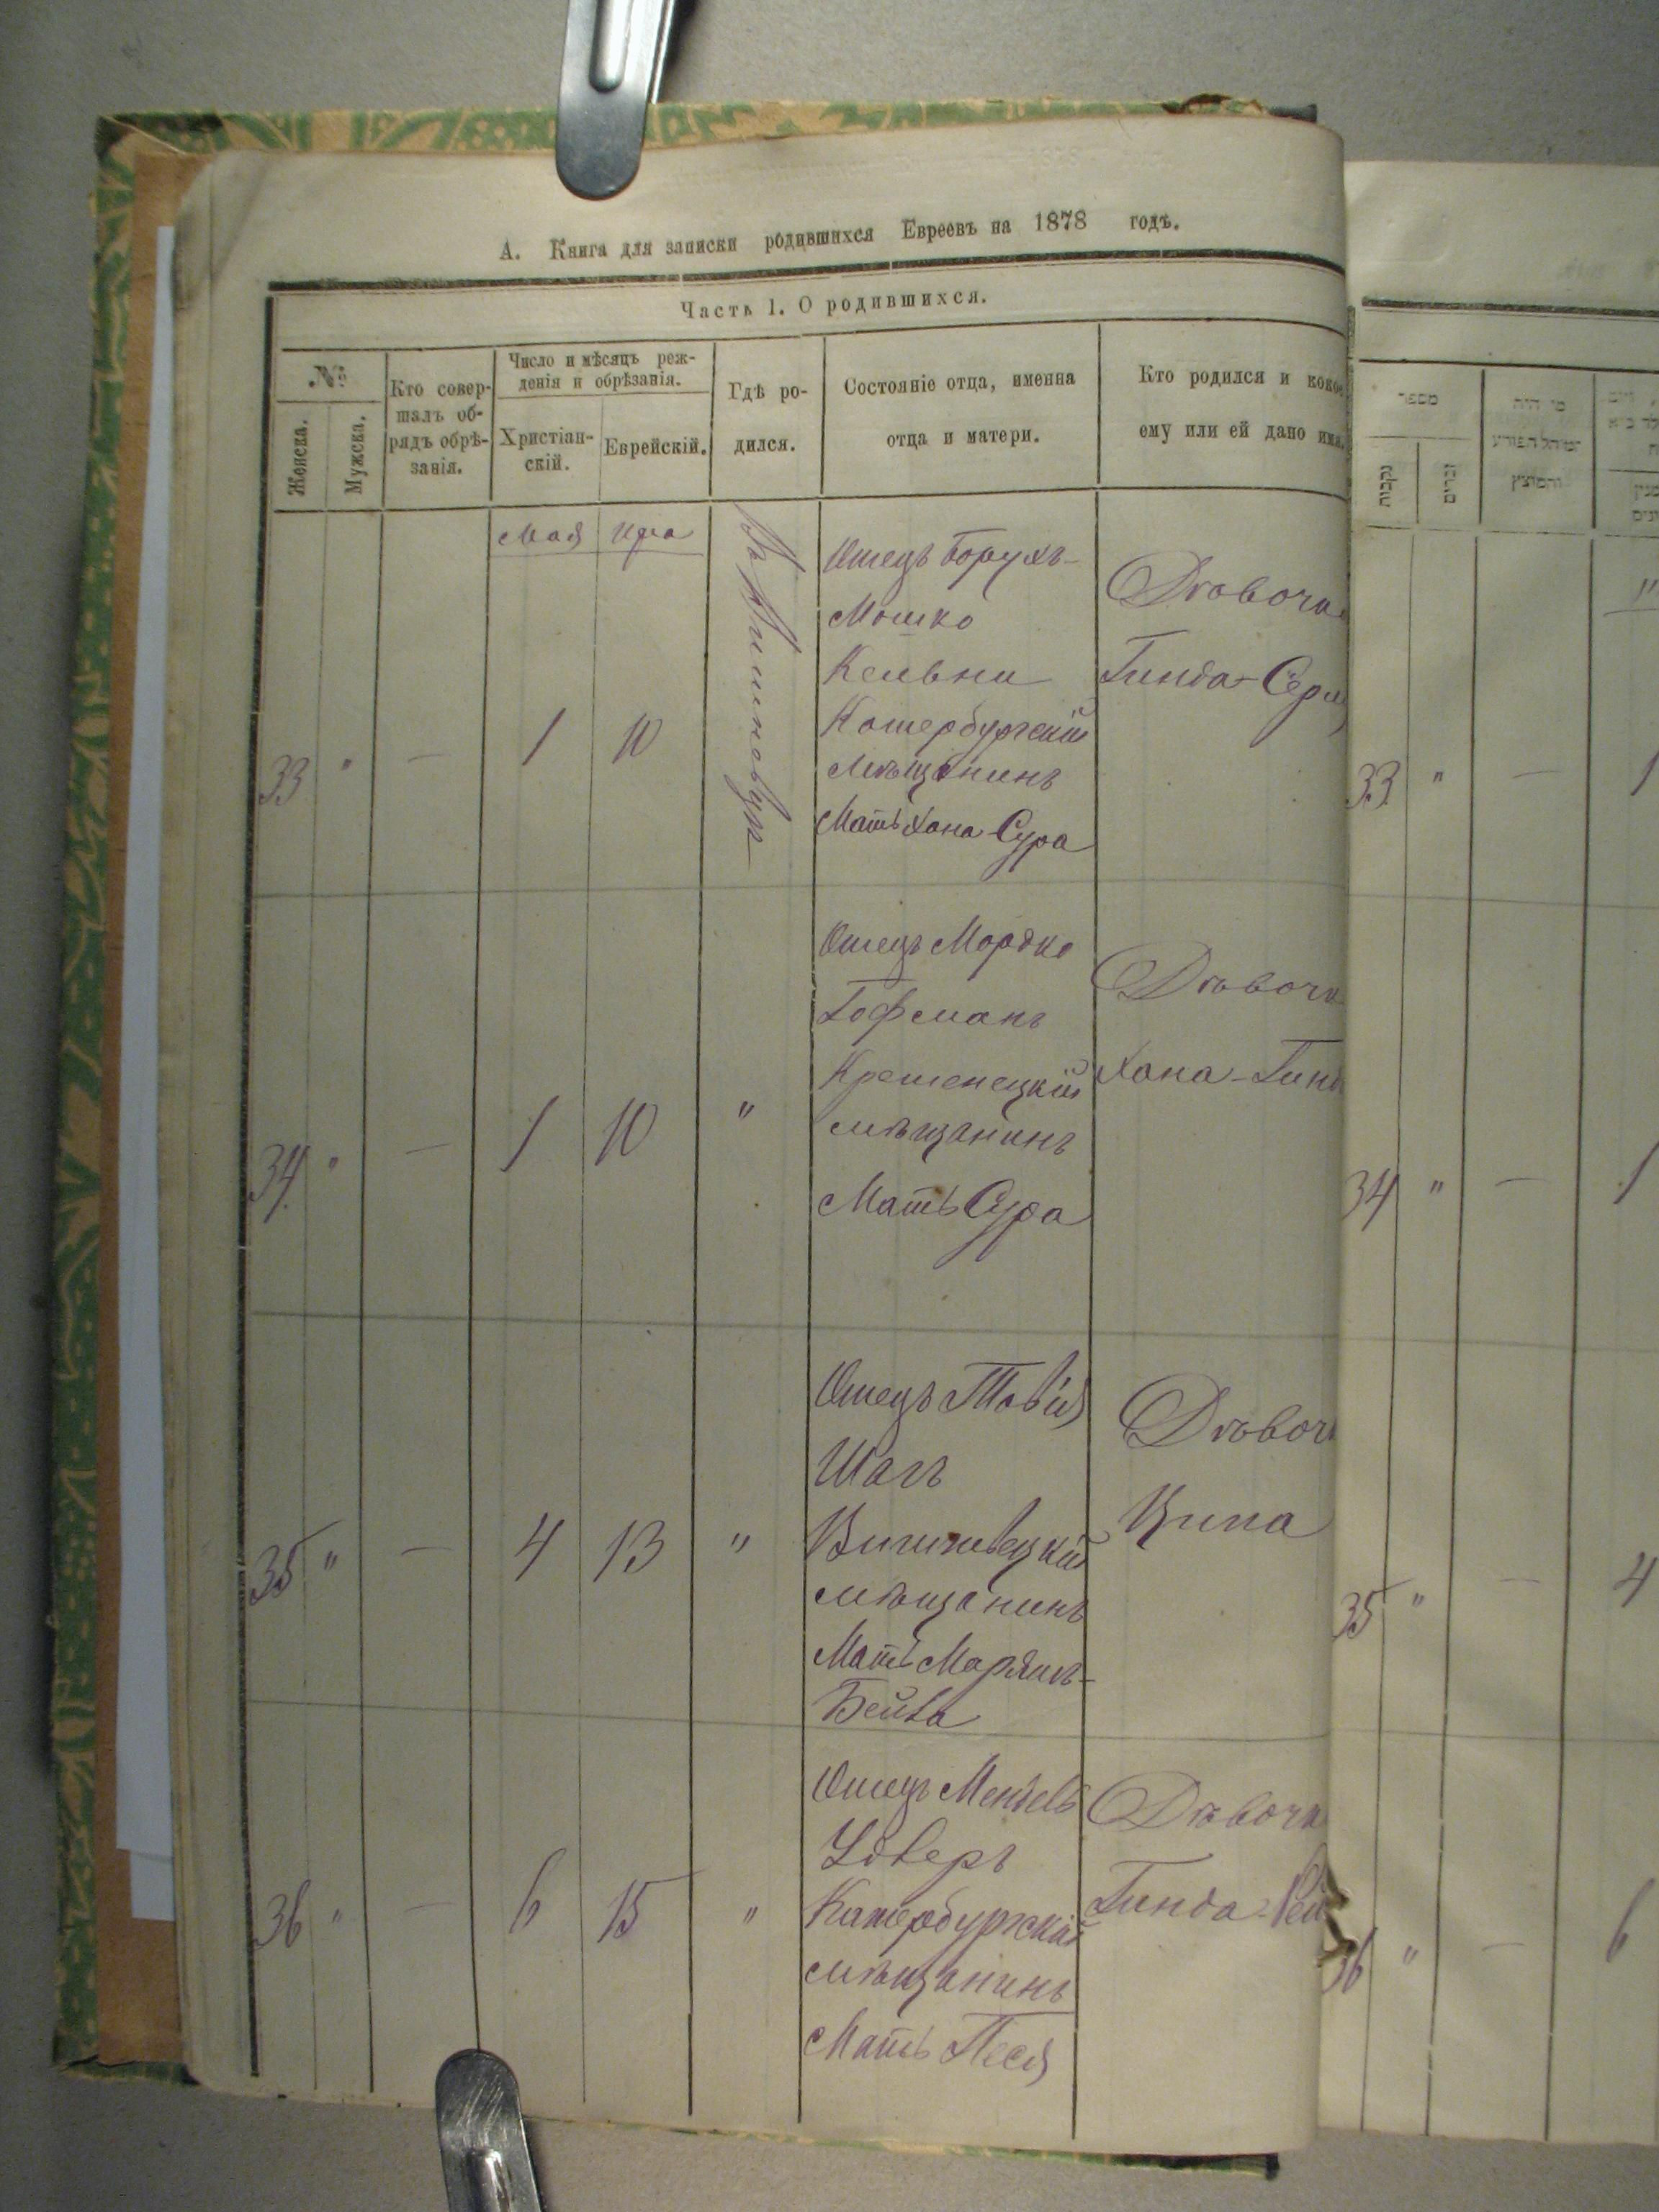 А. Книга для записки родившихся Евреевъ на 1878 годъ.
Часть 1. О родившихся.
№
Женска.
Мужска.
Кто совер-
шалъ об-
рядъ обрѣ-
занія.
Число и мѣсяцъ рож-
денія и обрѣзанія.
Христіан-
скій.
Еврейскій.
Гдѣ ро-
дился.
Состояніе отца, имена
отца и матери.
Кто родился и какое
ему или ей дано имя.
Мая Ира
33 " — 1 10
Отецъ Борухъ-
Мошко
Кельни
Катербургскій
мѣщанинъ
Мать Хана Сура
Дѣвочка
Гинда-Серл
34 " — 1 10 "
Отецъ Мордко
Гофманъ
Кременецкій
мѣщанинъ
Мать Сура
Дѣвочк
Хана-Гинд
35 " — 4 13 "
Отецъ Товій
Шагъ
Вишневецкій
мѣщанинъ
Мать Марямъ-
Бейла
Дѣвочк
Ципа
36 " — 6 15 "
Отецъ Мендель
Удверъ
Катербургскій
мѣщанинъ
Мать Песя
Дѣвочк
Гинда-Рей
מספר
נקבות
זכרים
מי היה
המוהל הפורע
והמוצץ
33 " — 1
34 " — 1
35 " — 4
36 " — 6